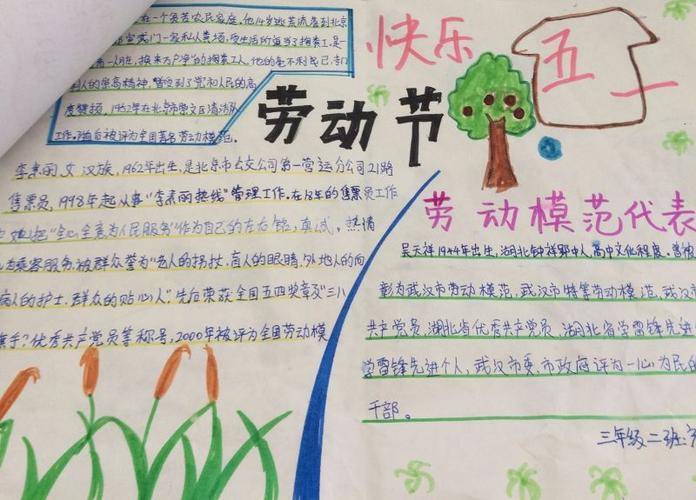 在一个贫苦农民家庭。他14岁逃荒落到北京
门一家私人粪场,受生活所逼当了掏粪工,是
人的崇高精神,
1952年在北京市崇文区清洁队
工作。被评为全国著名劳动模范。
快乐
五一
劳动节
李素丽,女,汉族,1962年出生,是北京市公交公司第一营运分公司21路
售票员,1998年起从事"李素丽热线"管理工作。在18年的售票员工作
中,她把"全心全意为人民服务"作为自己的左右铭,真诚、热情
为乘客服务,被群众誉为"老人的拐杖,盲人的眼睛,外地人的向
病人的护士,群众的贴心人",先后荣获全国五四奖章及"三八
旗手"优秀共产党员等称号,2000年被评为全国劳动模
劳动模范代表
吴天祥1944年出生,湖北钟祥郢中人,高中文化程度。曾被
彰为武汉市劳动模范,武汉市特等劳动模范,武汉市
共产党员,湖北省优秀共产党员,湖北省学雷锋先进
学雷锋先进个人,武汉市委、市政府评为一心为民的
干部。
三年级二班: